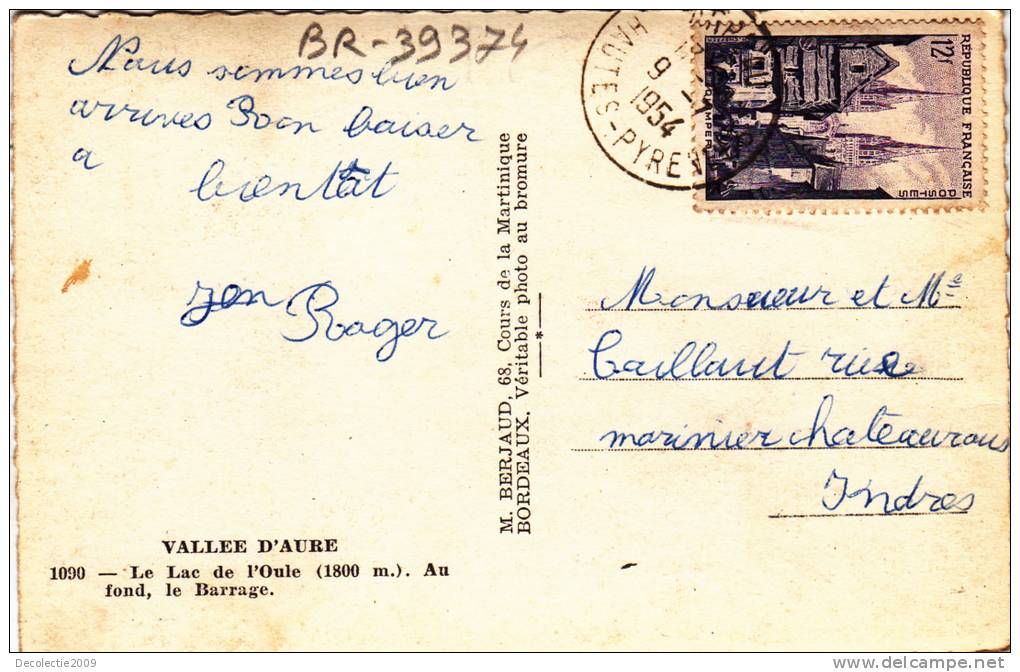 BR-39374
Nous sommes bien
arrives Bon baiser
a bientôt
Roger
VALLEE D'AURE
1090 — Le Lac de l'Oule (1800 m.). Au
fond, le Barrage.
M. BERJAUD, 68, Cours de la Martinique
BORDEAUX. Véritable photo au bromure
*
HAUTES-PYRENEES
9
1954
12f
REPUBLIQUE FRANÇAISE
POSTES
QUIMPER
Monsieur et Mme
Caillaut rue
marinier chateauroux
Indres
Decolectie2009
www.delcampe.net